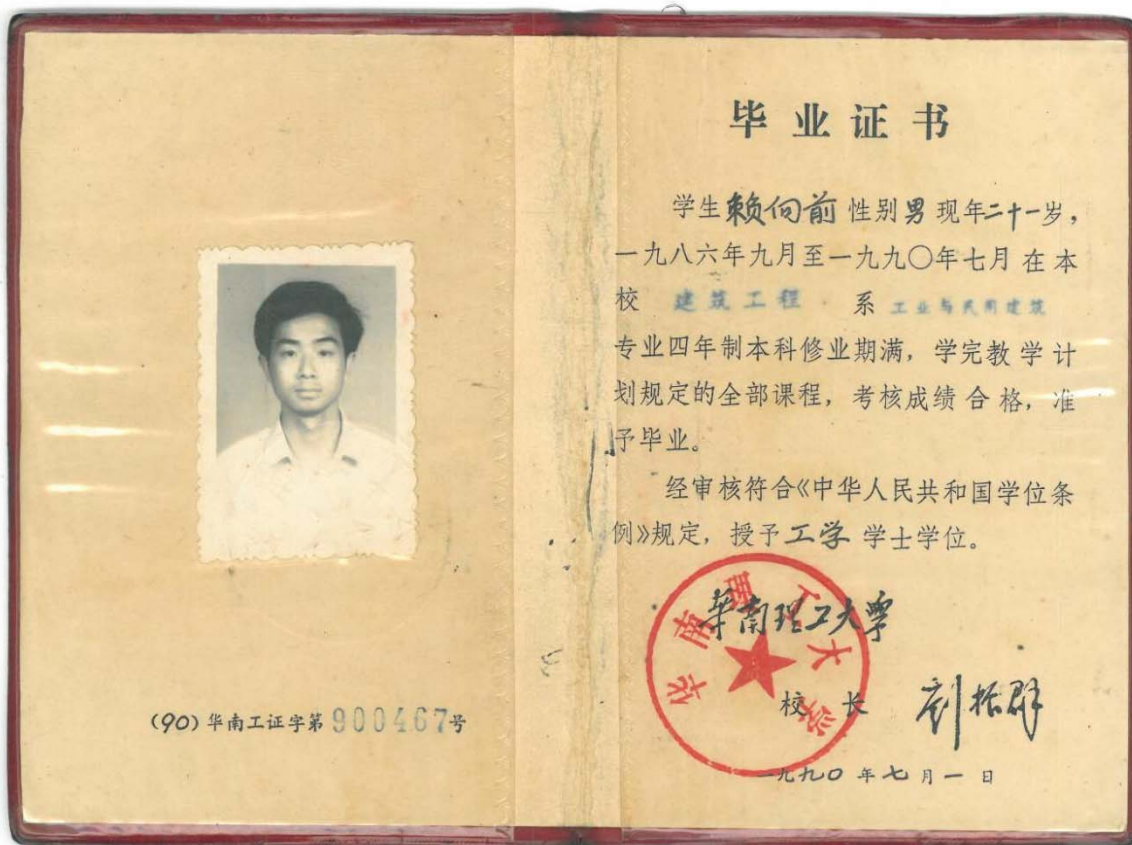 (90)华南工证字第900467号
毕业证书
学生赖向前性别男现年二十一岁，
一九八六年九月至一九九〇年七月在本
校 建筑工程 系 工业与民用建筑
专业四年制本科修业期满，学完教学计
划规定的全部课程，考核成绩合格，准
予毕业。
经审核符合《中华人民共和国学位条
例》规定，授予工学学士学位。
华南理工大学
華南理工大學
校长 刘振群
一九九〇年七月一日